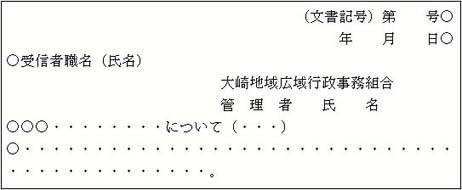 （文書記号）第　　号○
年　　月　　日○
○受信者職名（氏名）
大崎地域広域行政事務組合
管　理　者　　氏　　名
○○○・・・・・・・・について（・・・）
○・・・・・・・・・・・・・・・・・・・・・・・・・・・・・・・
・・・・・・・・・・・・・・。